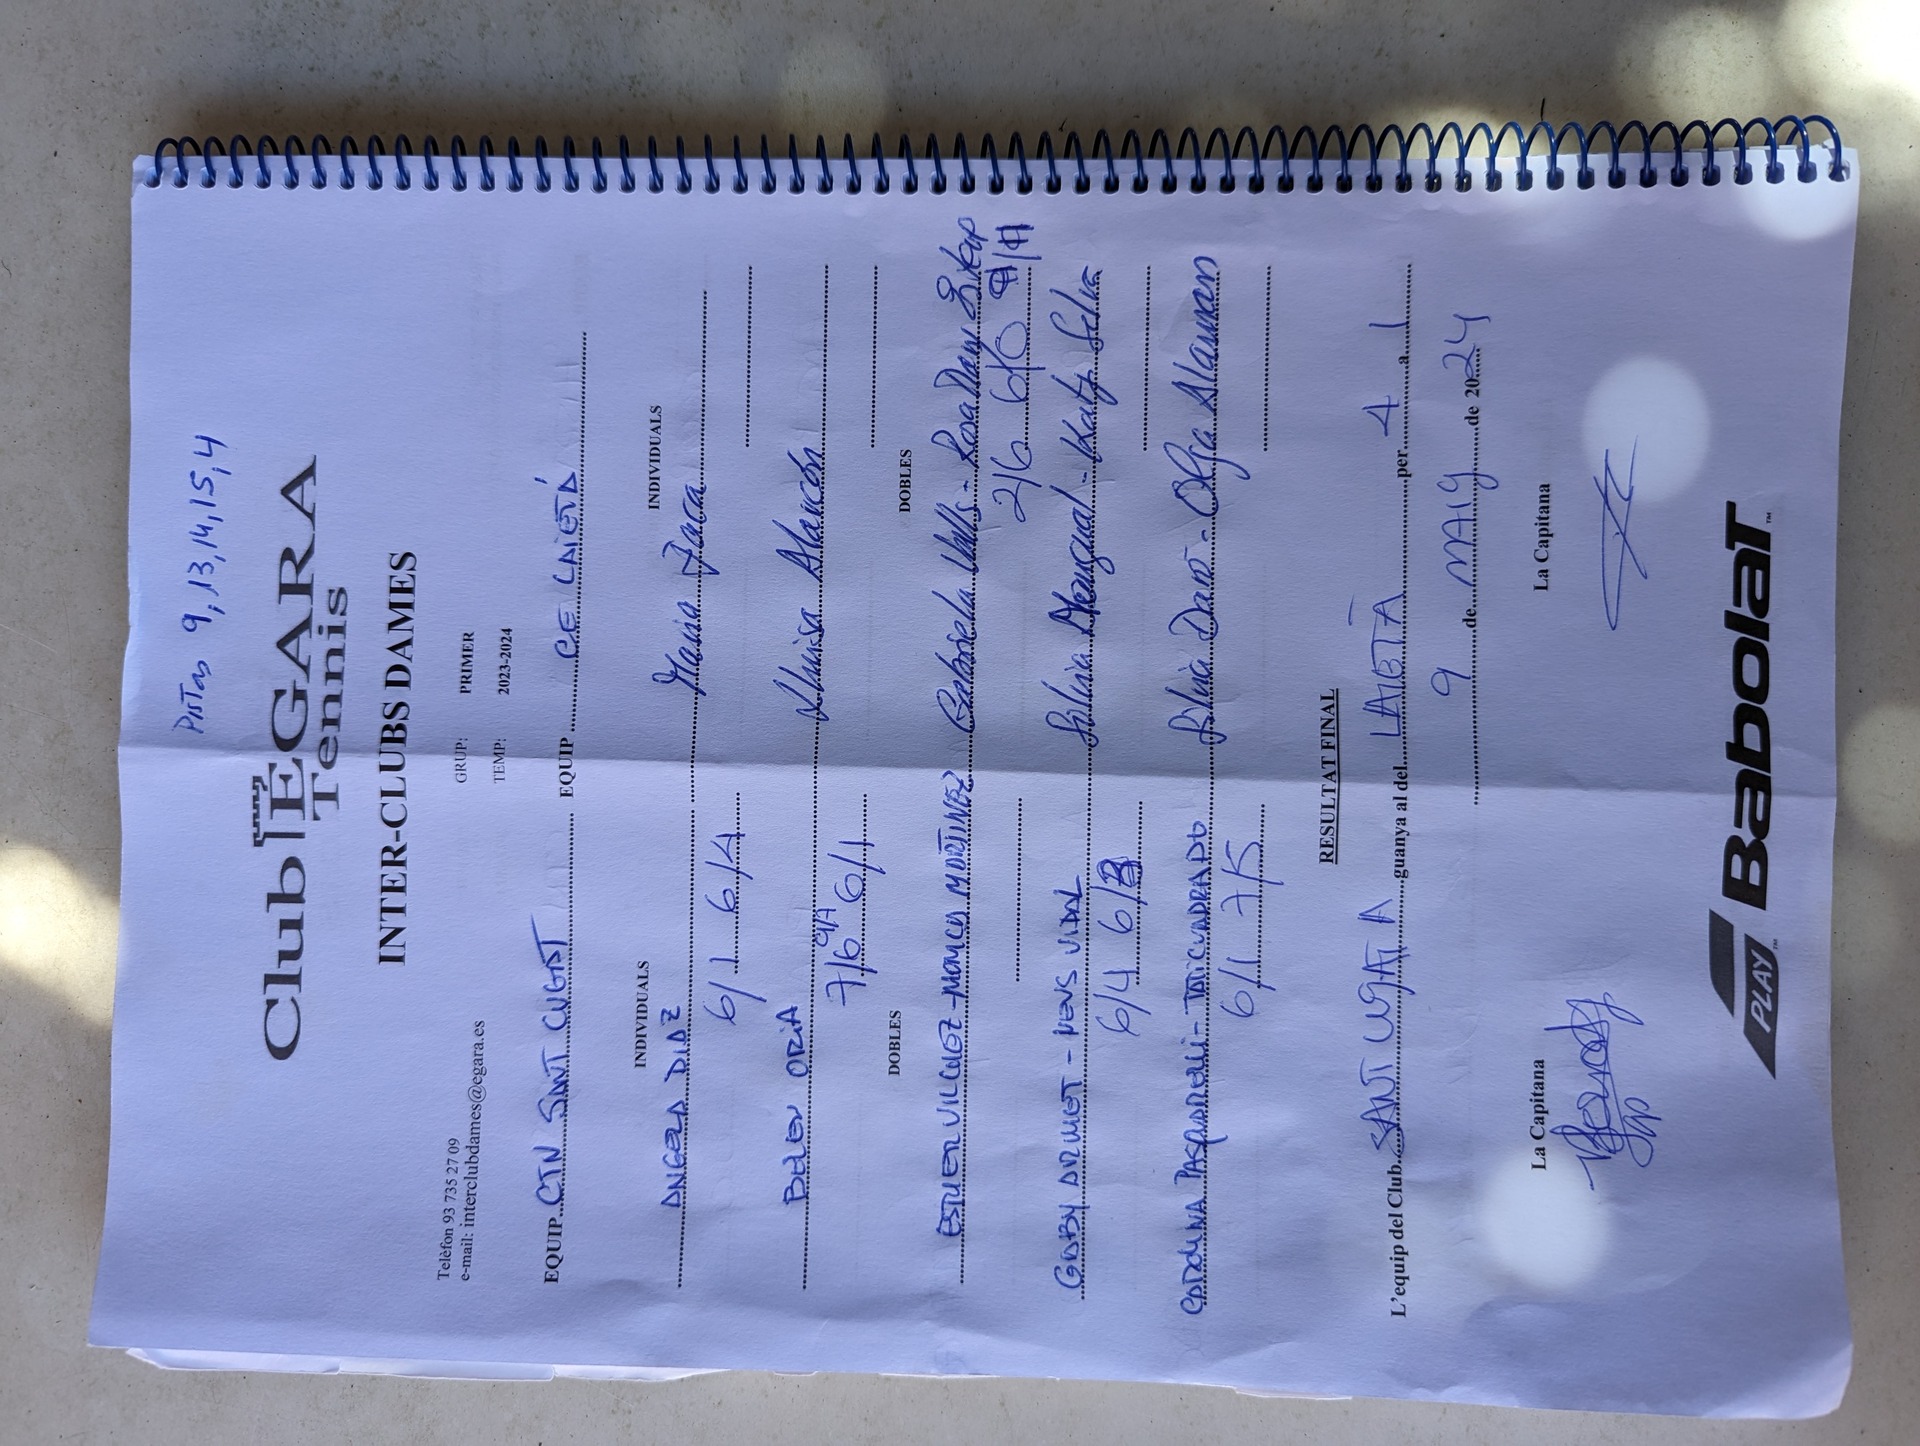 Pistas 9, 13, 14, 15, 4
Club EGARA
Tennis
INTER-CLUBS DAMES
Telèfon 93 735 27 09
e-mail: interclubdames@egara.es
GRUP: PRIMER
TEMP: 2023-2024
EQUIP CTN SANT CUGAT EQUIP CE LAIETÀ
INDIVIDUALS INDIVIDUALS
ANGELA DIAZ Maria Jaca
6/1 6/4
BELEN ORIA Luisa Alarcón
7/6 6/1
DOBLES DOBLES
ESTHER VILCHEZ - MONICA MARTINEZ Gabriela Valls - Rosa Mary
2/6 6/0
GABY ARMET - NENS VIDAL Silvia Mengual - Katy Selva
6/4 6/3
CAROLINA PASQUARELLI - TATI CUADRADO Silvia Daró - Olga Alaman
6/1 7/5
RESULTAT FINAL
L'equip del Club SANT CUGAT A guanya al del LAIETÀ per 4 a 1
9 de MAIG de 2024
La Capitana La Capitana
PLAY Babolat